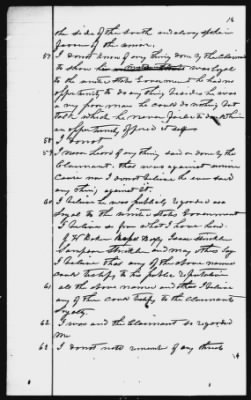 16
the side of the south and always spoke in
favor of the union.
57 I do not know of any thing done by the Claimant
to show his was loyal
to the united States Government he had no
opportunity to do any thing besides he was
a free man he could do nothing but
talk which he never failed to do when
an opportunity offered it self
58 I do not
59 I never heard of any thing said or done by the
Claimant that was against union
cause nor I do not believe he ever said
any thing against it.
60 I believe he was publicly regarded as
loyal to the united States Government
I believe so from what I have heard.
J. H. Baker Isaac Strickle
Sampson Strickle and many others too
I believe that any of the above names
could testify to his public reputation
61 all the above names and others I believe
any of them could testify to the Claimants
Loyalty
62 I was and the Claimant so regarded
me
63 I do not remember of any threats